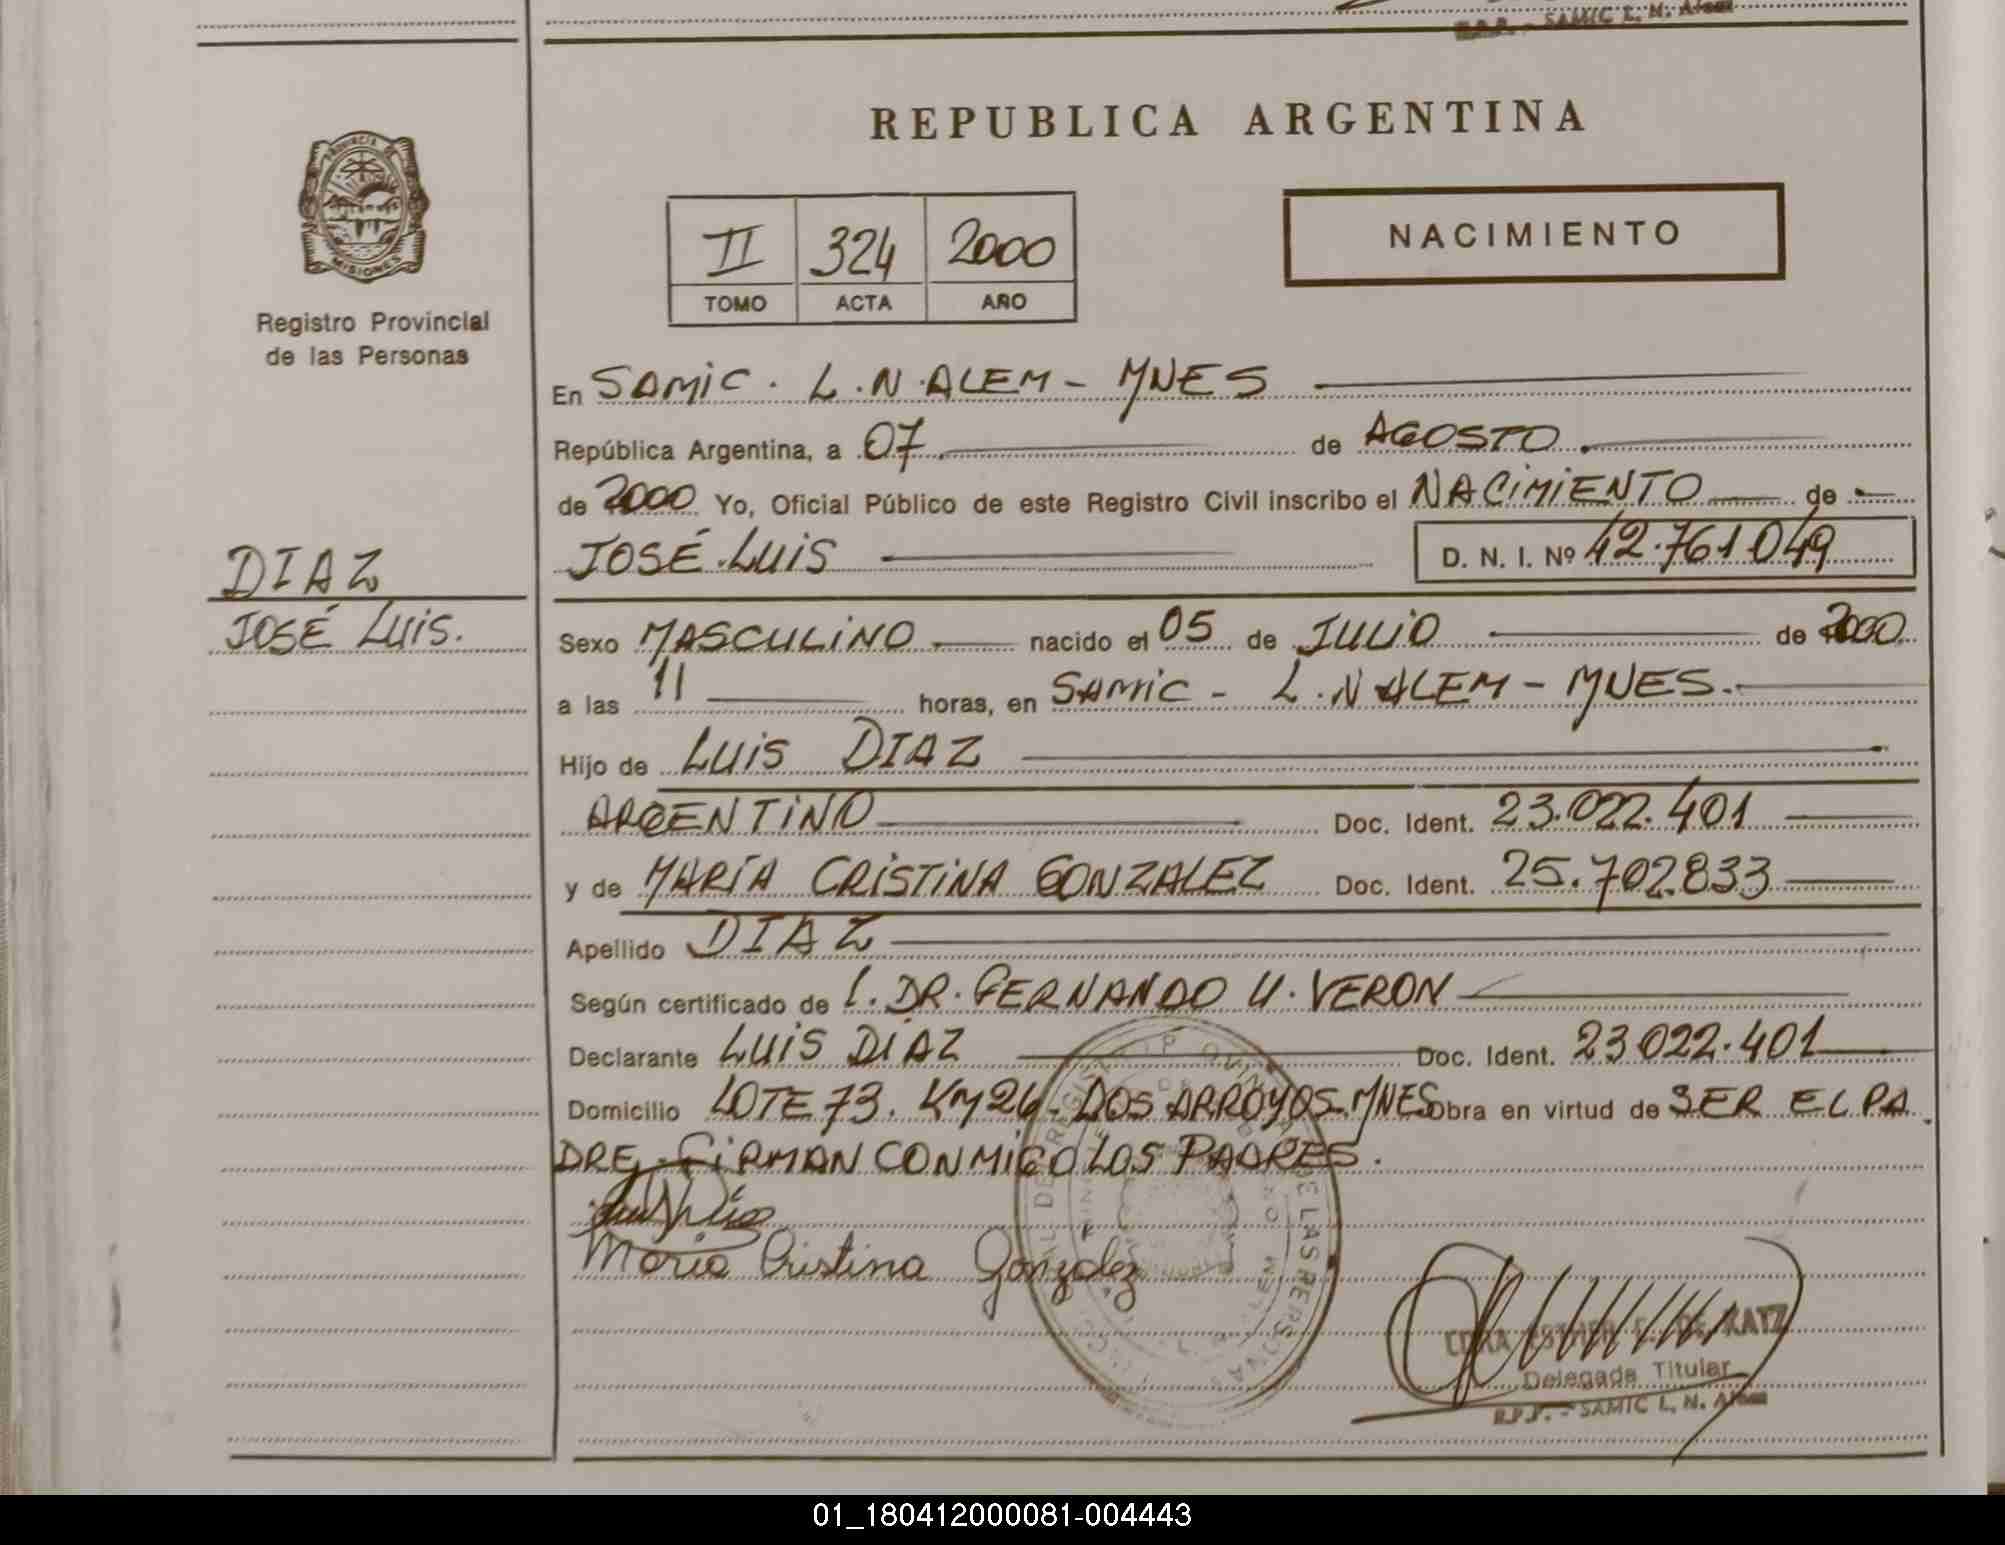 R.P.P. - SAMIC L. N. Alem
REPUBLICA ARGENTINA
PROVINCIA DE
MISIONES
Registro Provincial
de las Personas
II 324 2000
TOMO ACTA AÑO
NACIMIENTO
En SAMIC. L.N.ALEM - MNES
República Argentina, a 07 de AGOSTO
de 2000 Yo, Oficial Público de este Registro Civil inscribo el NACIMIENTO de
JOSÉ LUIS D. N. I. Nº 42.761.049
DIAZ
JOSÉ LUIS.
Sexo MASCULINO nacido el 05 de JULIO de 2000
a las 11 horas, en SAMIC - L.N ALEM - MNES.
Hijo de LUIS DIAZ
ARGENTINO Doc. Ident. 23.022.401
y de MARÍA CRISTINA GONZALEZ Doc. Ident. 25.702.833
Apellido DIAZ
Según certificado de L. DR. FERNANDO U. VERON
Declarante LUIS DIAZ Doc. Ident. 23.022.401
Domicilio LOTE 73. KM 26 - DOS ARROYOS. MNES Obra en virtud de SER EL PA
DRE. FIRMAN CONMIGO LOS PADRES.
Maria Cristina Gonzalez
DE LAS PERSONAS
DE KATZ
Delegada Titular
R.P.P. - SAMIC L. N. Alem
01_180412000081-004443